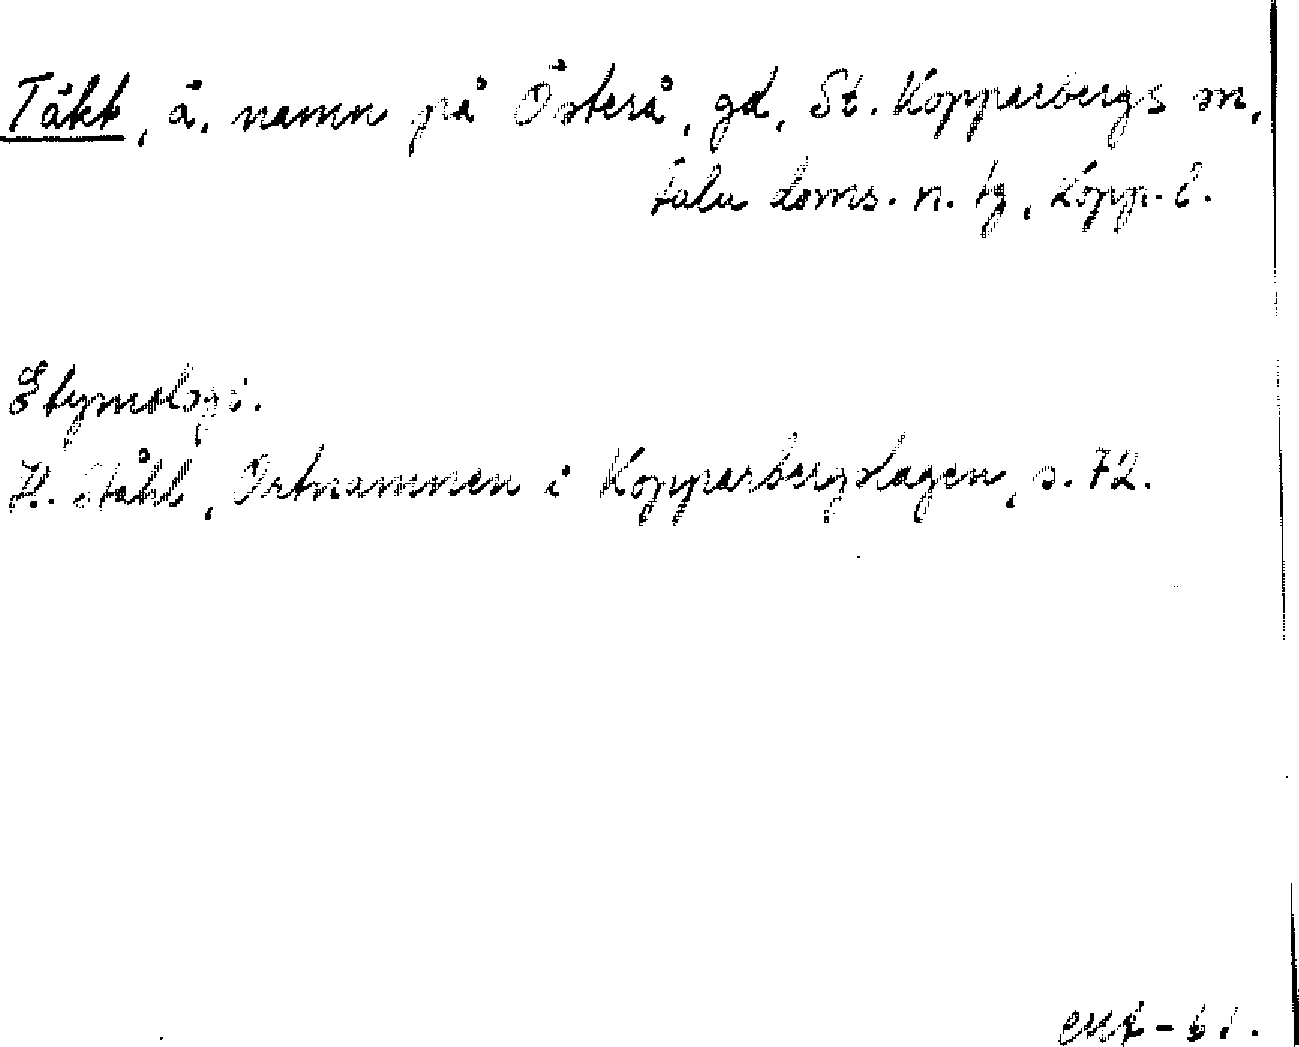 Täkt, ä. namn på Österå, gd, St. Kopparbergs sn,
Falu doms. n. tg, Kopp. l.
Etymologi.
H. Ståhl, Ortnamnen i Kopparbergslagen, s. 72.